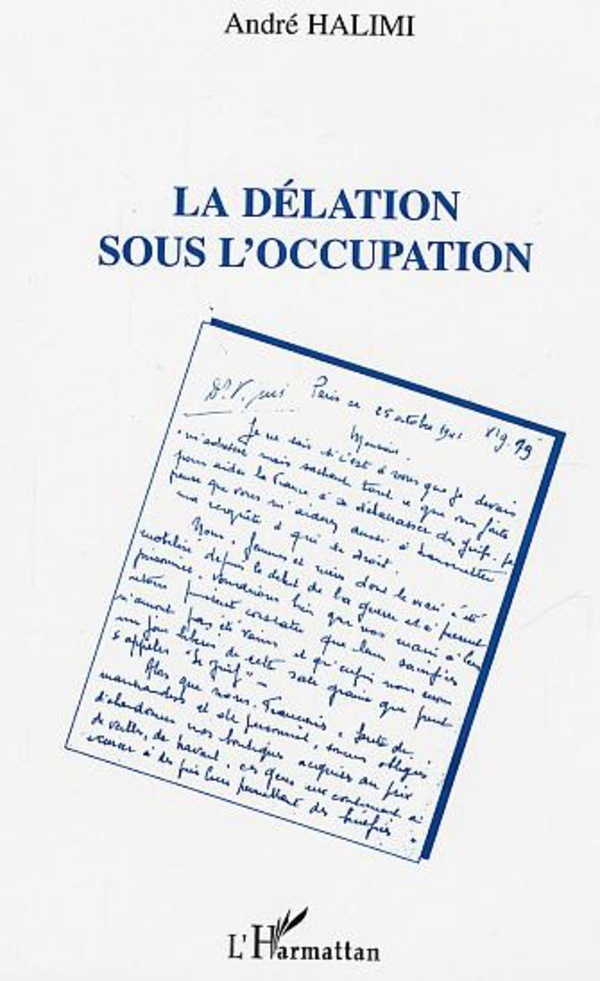 André HALIMI
LA DÉLATION
SOUS L'OCCUPATION
Paris ce 25 octobre 1941
Monsieur.
Je ne sais si c'est à vous que je devais
m'adresser mais sachant tout ce que vous faites
pour aider la France à se débarrasser des Juifs. Je
pense que vous m'aiderez aussi à transmettre
ma requête à qui de droit.
Nous, femmes et mères dont le mari a été
mobilisé depuis le début de la guerre et à présent
prisonnier, voudrions bien que nos maris à leur
retour puissent constater que leurs sacrifices
n'auront pas été vains et qu'enfin nous serons
un jour libérés de cette sale graine que peut
s'appeler "le Juif" -
Alors que nous, Français, faute de
marchandises et de personnel, sommes obligés
d'abandonner nos boutiques acquises au prix
de veilles, de travail, ces gens continuent à
à des prix leur permettant des bénéfices
L'Harmattan